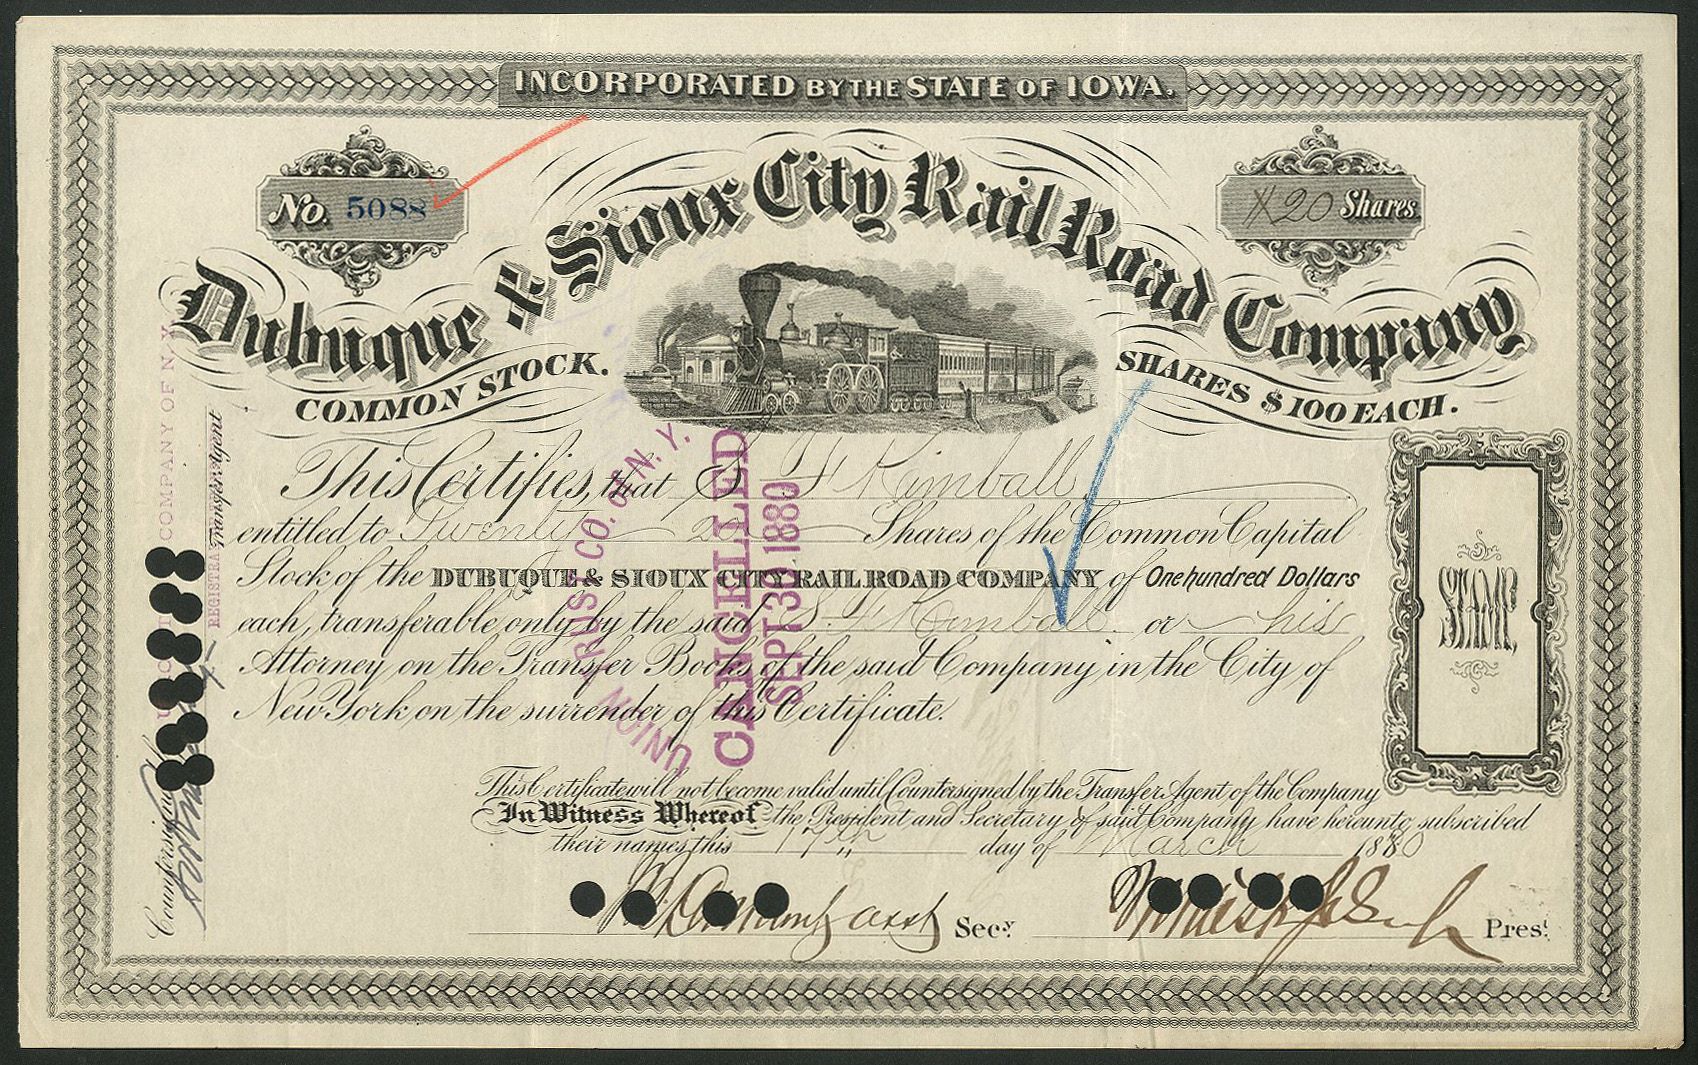 INCORPORATED BY THE STATE OF IOWA.
No. 5088
20 Shares
Dubuque & Sioux City Rail Road Company
COMMON STOCK.
SHARES $100 EACH.
This Certifies, that S. H. Kimball
entitled to Twenty 20 Shares of the Common Capital
Stock of the DUBUQUE & SIOUX CITY RAILROAD COMPANY of One hundred Dollars
each, transferable only by the said S. H. Kimball or his
Attorney on the Transfer Books of the said Company in the City of
New York on the surrender of this Certificate.
This Certificate will not become valid until Countersigned by the Transfer Agent of the Company
In Witness Whereof the President and Secretary of said Company have hereunto subscribed
their names this 17th day of March 1880
Secy.
Prest.
STAMP.
CANCELLED
SEPT 30 1880
UNION TRUST CO. OF N.Y.
COMPANY OF N.Y.
REGISTRAR
Transfer Agent
Countersigned